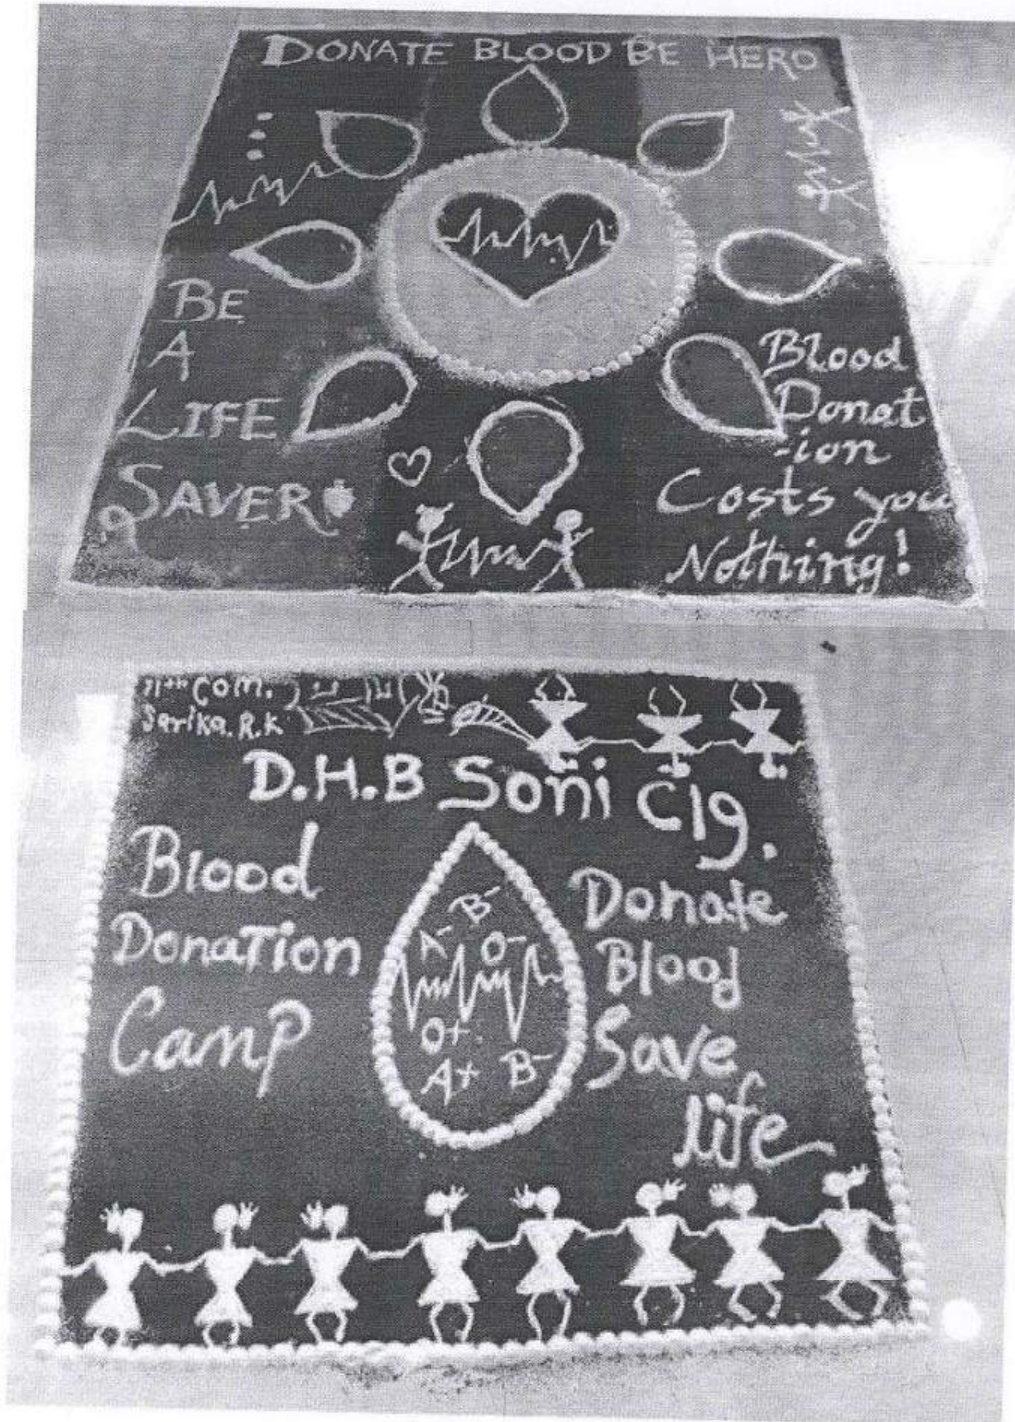 DONATE BLOOD BE HERO
BE
A
LIFE
SAVER
Blood
Donat
-ion
Costs you
Nothing!
11th Com.
Sarika. R. K
D.H.B Soni Clg.
Blood
Donation
Camp
Donate
Blood
Save
life
B-
A- O-
O+
A+ B-